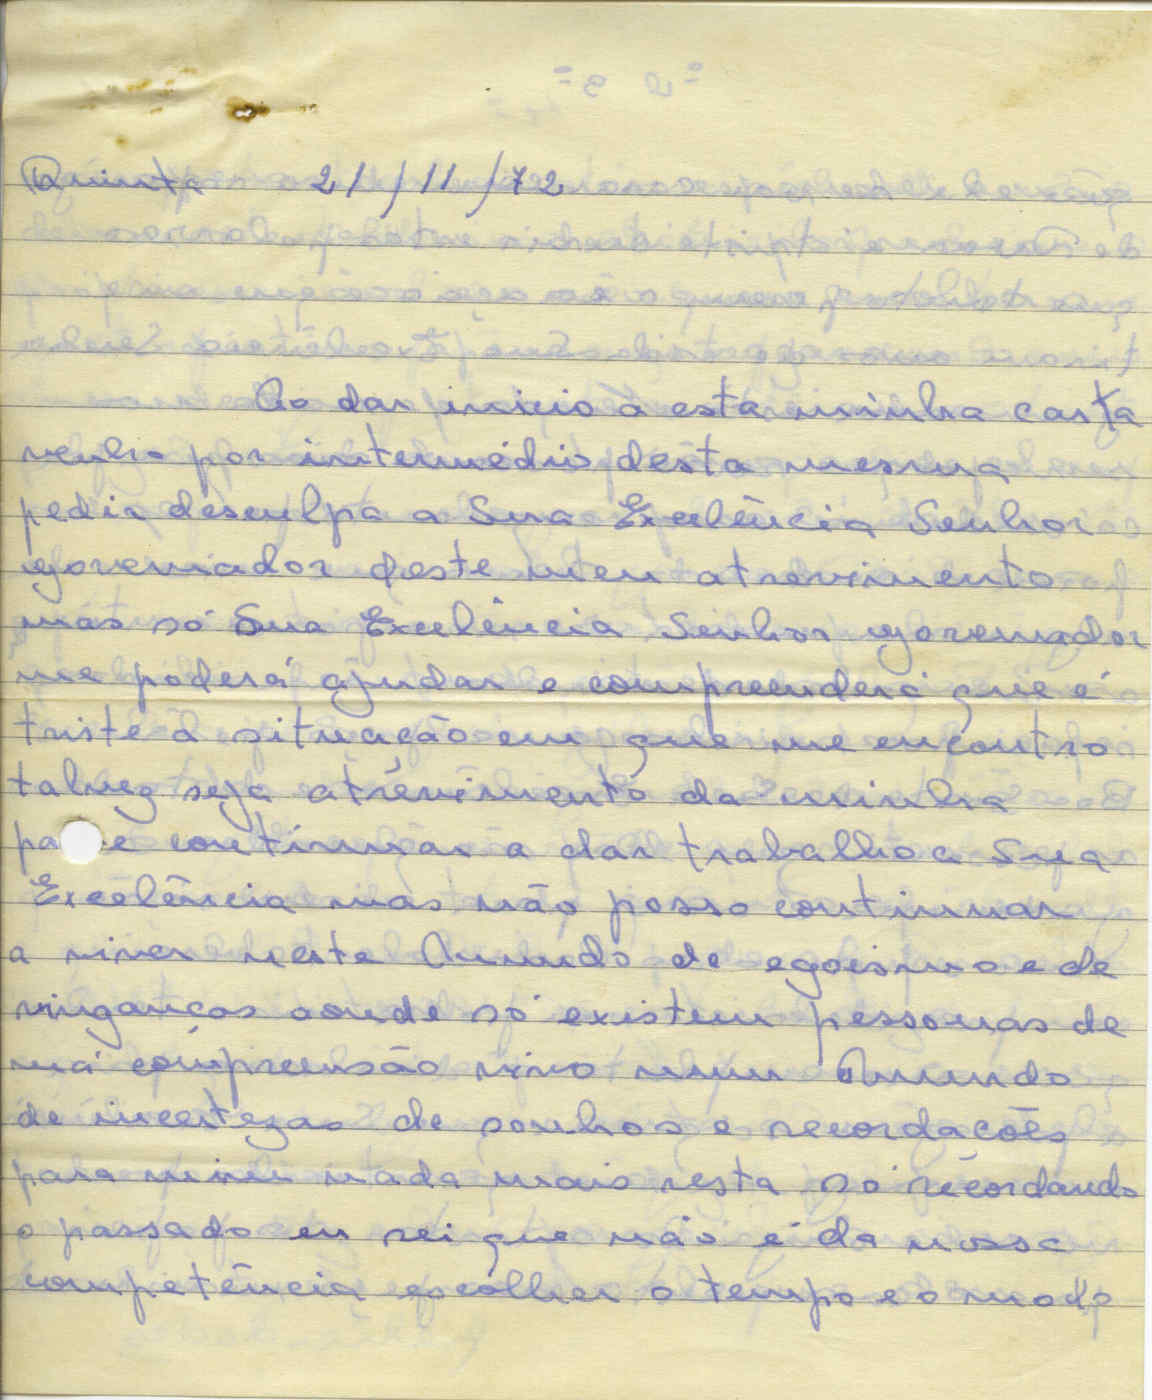 Quinta 21/11/72
Ao dar inicio a esta minha carta
venho por intermédio desta mesma
pedir desculpa a Sua Excelência Senhor
governador deste meu atrevimento
mas só Sua Excelência Senhor governador
me poderá ajudar e compreenderá que é
triste a situação em que me encontro
talvez seja atrevimento da minha
pa e continuar a dar trabalho a Sua
Excelência mas não posso continuar
a viver neste Mundo de egoismo e de
vinganças aonde só existem pessouas de
má compreensão vivo num Mundo
de incertezas de sonhos e recordações
para mim nada mais resta só recordando
o passado eu sei que não é da nossa
competência escolher o tempo e o modo